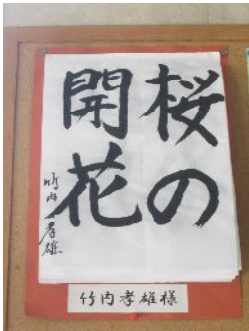 桜の
開花
竹内孝雄
竹内孝雄様